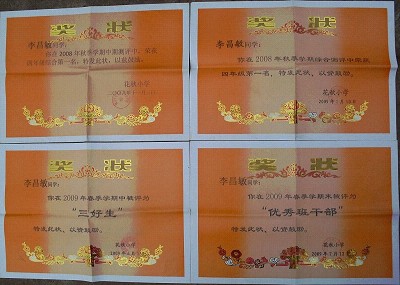 奖状
李昌敏同学：
你在2008年秋季学期中期测评中，荣获
四年级综合第一名，特发此状，以兹鼓励。
花秋小学
奖状
李昌敏同学：
你在2008年秋季学期综合测评中荣获
四年级第一名，特发此状，以资鼓励。
花秋小学
奖状
李昌敏同学：
你在2009年春季学期中被评为
“三好生”
特发此状，以资鼓励。
花秋小学
奖状
李昌敏同学：
你在2009年春季学期末被评为
“优秀班干部”
特发此状，以资鼓励。
花秋小学